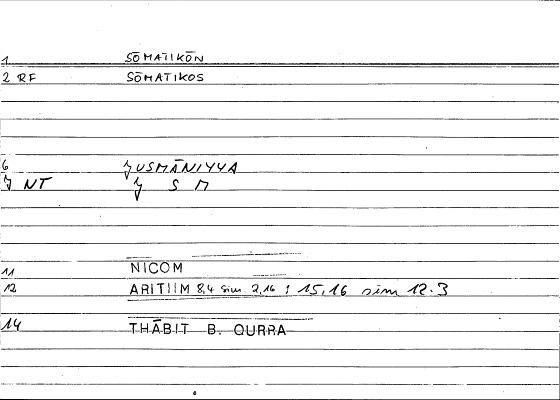 1 SŌMATIKŌN
2 RF SŌMATIKOS
6 ȷUSMĀNIYYA
ȷ NT ȷ S M
11 NICOM
12 ARITHM 8,4 sim 2,16 ; 15,16 sim 12.3
14 THĀBIT B. QURRA